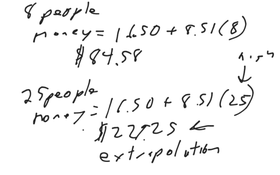 8 people
money = 16.50 + 8.51(8)
$84.58
high
25 people
money = 16.50 + 8.51(25)
$229.25 ←
extrapolution